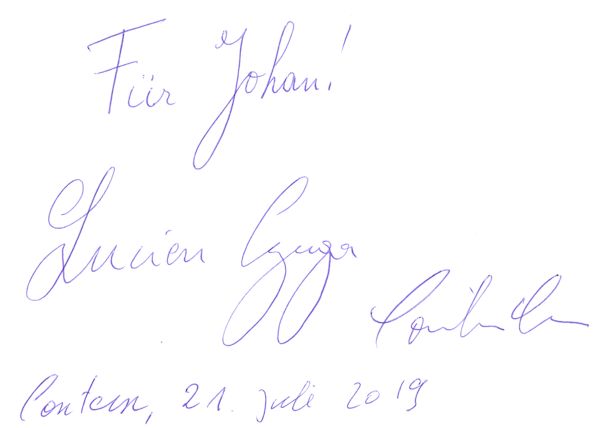 Für Johan!
Lucien Czuga
Contern, 21. Juli 2019